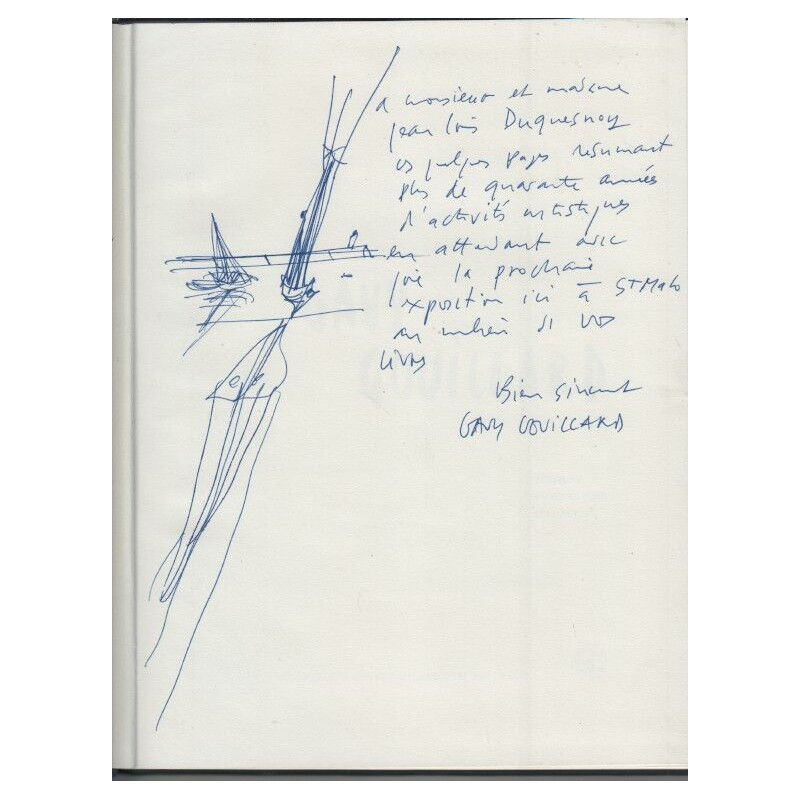 a monsieur et madame
jean Louis Duquesnoy
ces quelques pages résumant
plus de quarante années
d'activités artistiques
en attendant avec
joie la prochaine
exposition ici à St Malo
au milieu de vos
livres
Bien sincerement